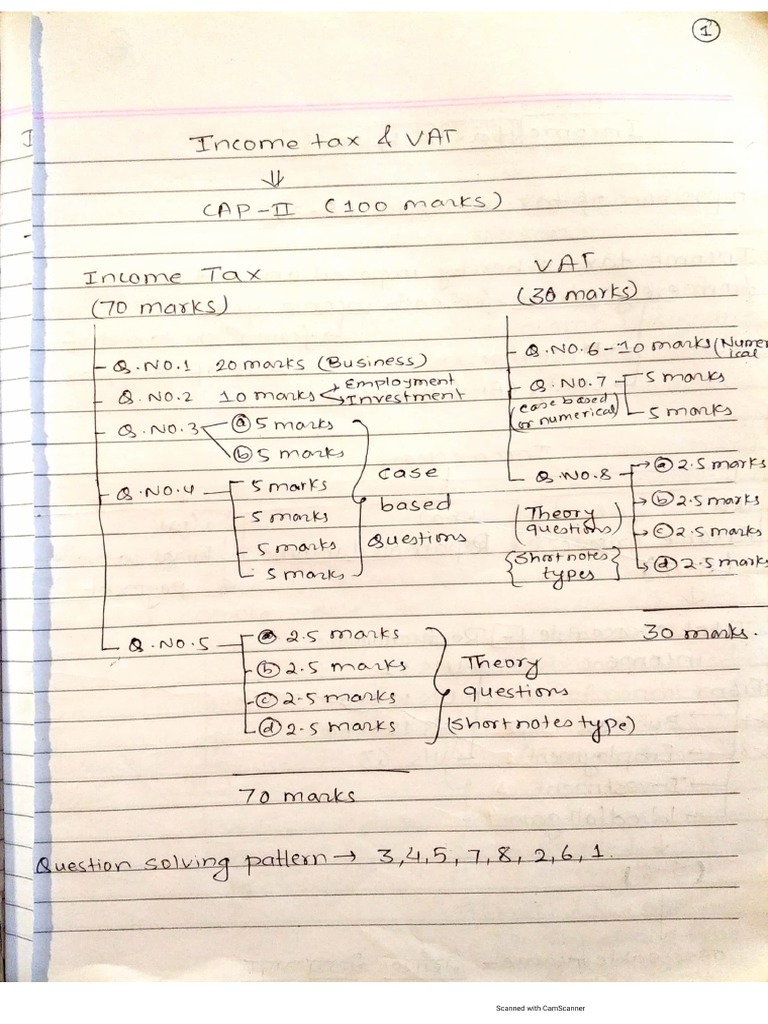 1
Income tax & VAT
⇓
CAP-II (100 marks)
Income Tax
(70 marks)
Q.NO.1 20 marks (Business)
Q.NO.2 10 marks → Employment
→ Investment
Q.NO.3 ⓐ 5 marks
ⓑ 5 marks
Q.NO.4 5 marks
5 marks
5 marks
5 marks
case
based
Questions
Q.NO.5 ⓐ 2.5 marks
ⓑ 2.5 marks
ⓒ 2.5 marks
ⓓ 2.5 marks
Theory
questions
(short notes type)
70 marks
VAT
(30 marks)
Q.NO.6 - 10 marks (Numer
ical
Q.NO.7 5 marks
5 marks
(case based
or numerical)
Q.NO.8 → ⓐ 2.5 marks
→ ⓑ 2.5 marks
→ ⓒ 2.5 marks
→ ⓓ 2.5 marks
(Theory
questions)
{Short notes
types}
30 marks.
Question solving pattern → 3,4,5,7,8,2,6,1.
Scanned with CamScanner